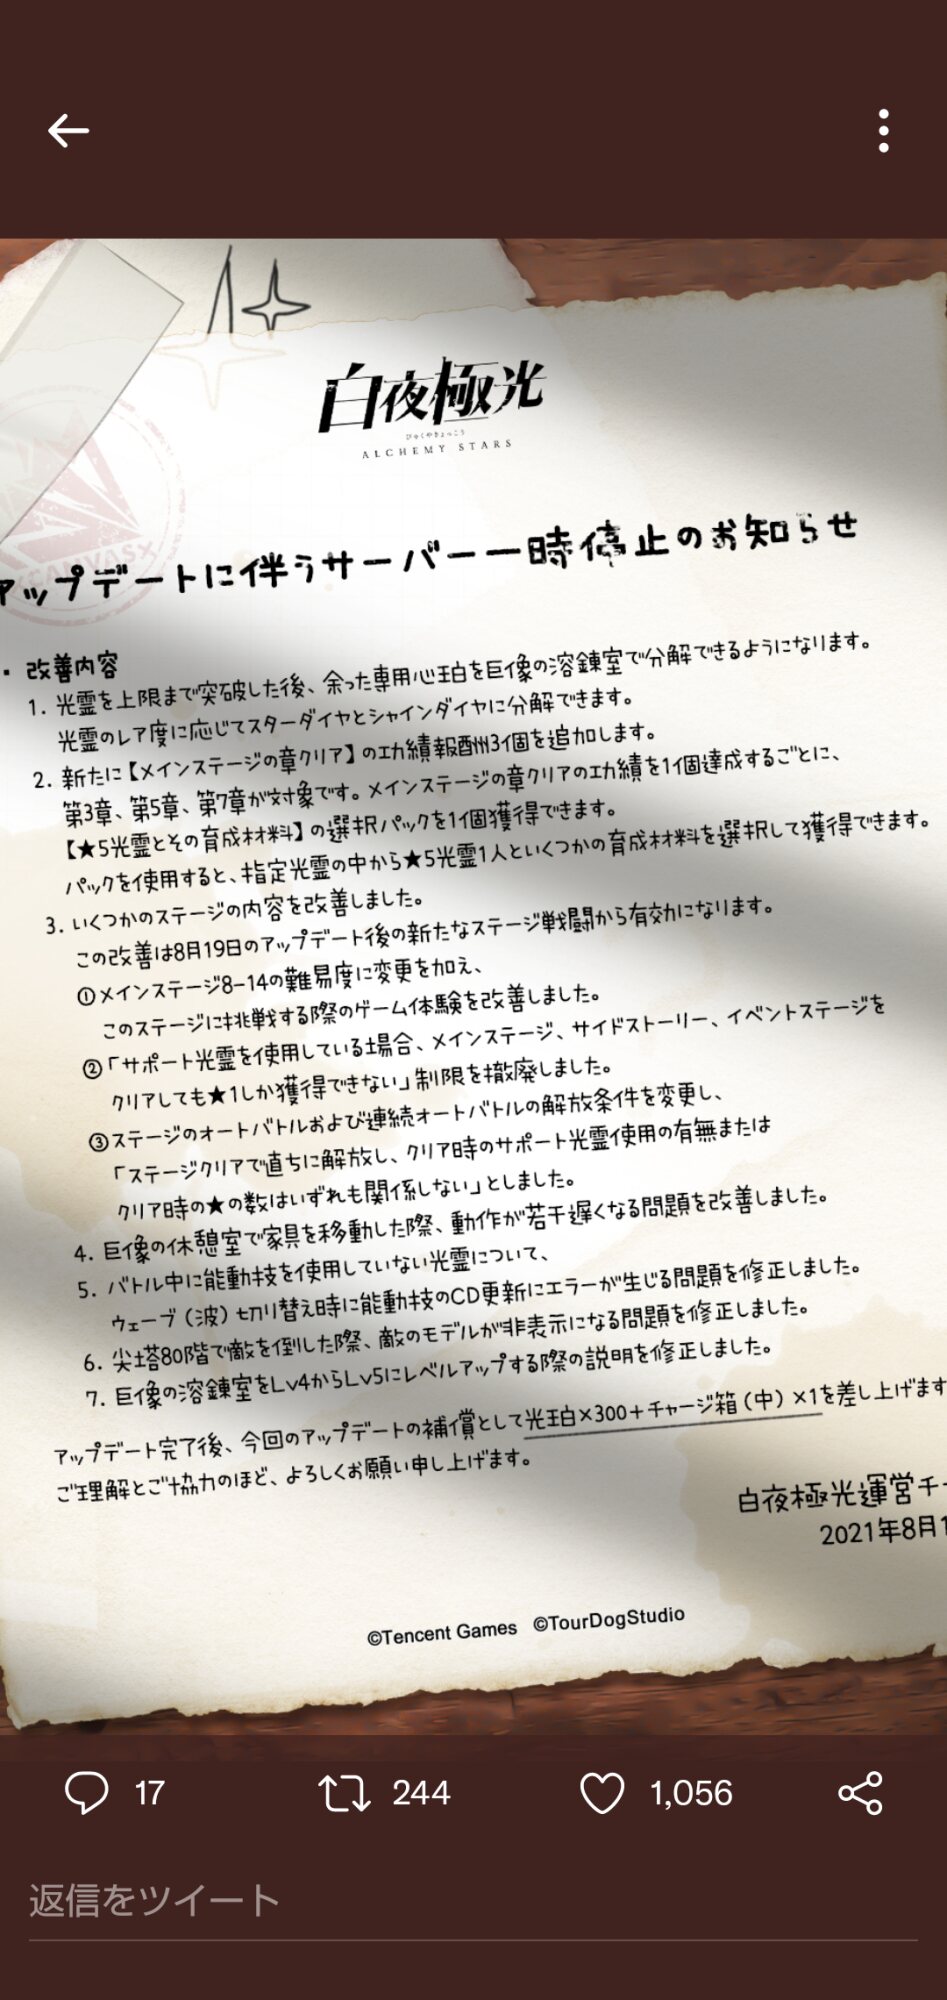 白夜極光
びゃくやきょっこう
ALCHEMY STARS
CANVAS
アップデートに伴うサーバー一時停止のお知らせ
・改善内容
1. 光霊を上限まで突破した後、余った専用心珀を巨像の溶錬室で分解できるようになります。
光霊のレア度に応じてスターダイヤとシャインダイヤに分解できます。
2. 新たに【メインステージの章クリア】の功績報酬3個を追加します。
第3章、第5章、第7章が対象です。メインステージの章クリアの功績を1個達成するごとに、
【★5光霊とその育成材料】の選択パックを1個獲得できます。
パックを使用すると、指定光霊の中から★5光霊1人といくつかの育成材料を選択して獲得できます。
3. いくつかのステージの内容を改善しました。
この改善は8月19日のアップデート後の新たなステージ戦闘から有効になります。
①メインステージ8-14の難易度に変更を加え、
このステージに挑戦する際のゲーム体験を改善しました。
②「サポート光霊を使用している場合、メインステージ、サイドストーリー、イベントステージを
クリアしても★1しか獲得できない」制限を撤廃しました。
③ステージのオートバトルおよび連続オートバトルの解放条件を変更し、
「ステージクリアで直ちに解放し、クリア時のサポート光霊使用の有無または
クリア時の★の数はいずれも関係しない」としました。
4. 巨像の休憩室で家具を移動した際、動作が若干遅くなる問題を改善しました。
5. バトル中に能動技を使用していない光霊について、
ウェーブ（波）切り替え時に能動技のCD更新にエラーが生じる問題を修正しました。
6. 尖塔80階で敵を倒した際、敵のモデルが非表示になる問題を修正しました。
7. 巨像の溶錬室をLv4からLv5にレベルアップする際の説明を修正しました。
アップデート完了後、今回のアップデートの補償として光珀×300+チャージ箱（中）×1を差し上げます
ご理解とご協力のほど、よろしくお願い申し上げます。
白夜極光運営チー
2021年8月1
©Tencent Games ©TourDogStudio
17 244 1,056
返信をツイート